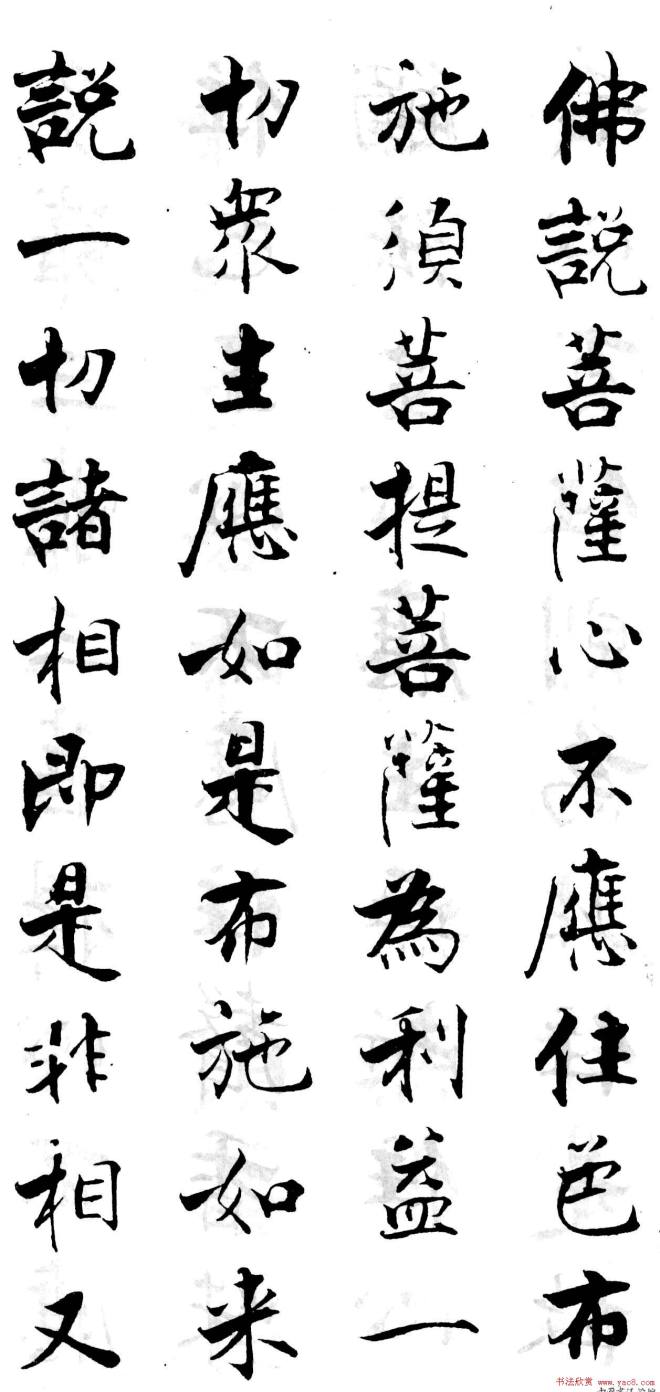 佛説菩薩心不應住色布
施須菩提菩薩為利益一
切衆生應如是布施如来
説一切諸相即是非相又
书法欣赏 www.yac8.com